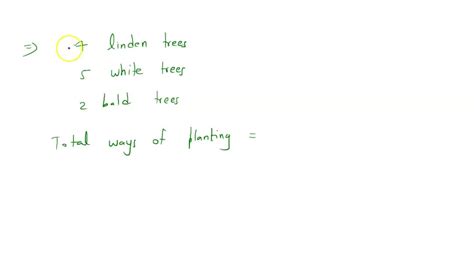 ⇒ 4 linden trees
5 white trees
2 bald trees
Total ways of planting =